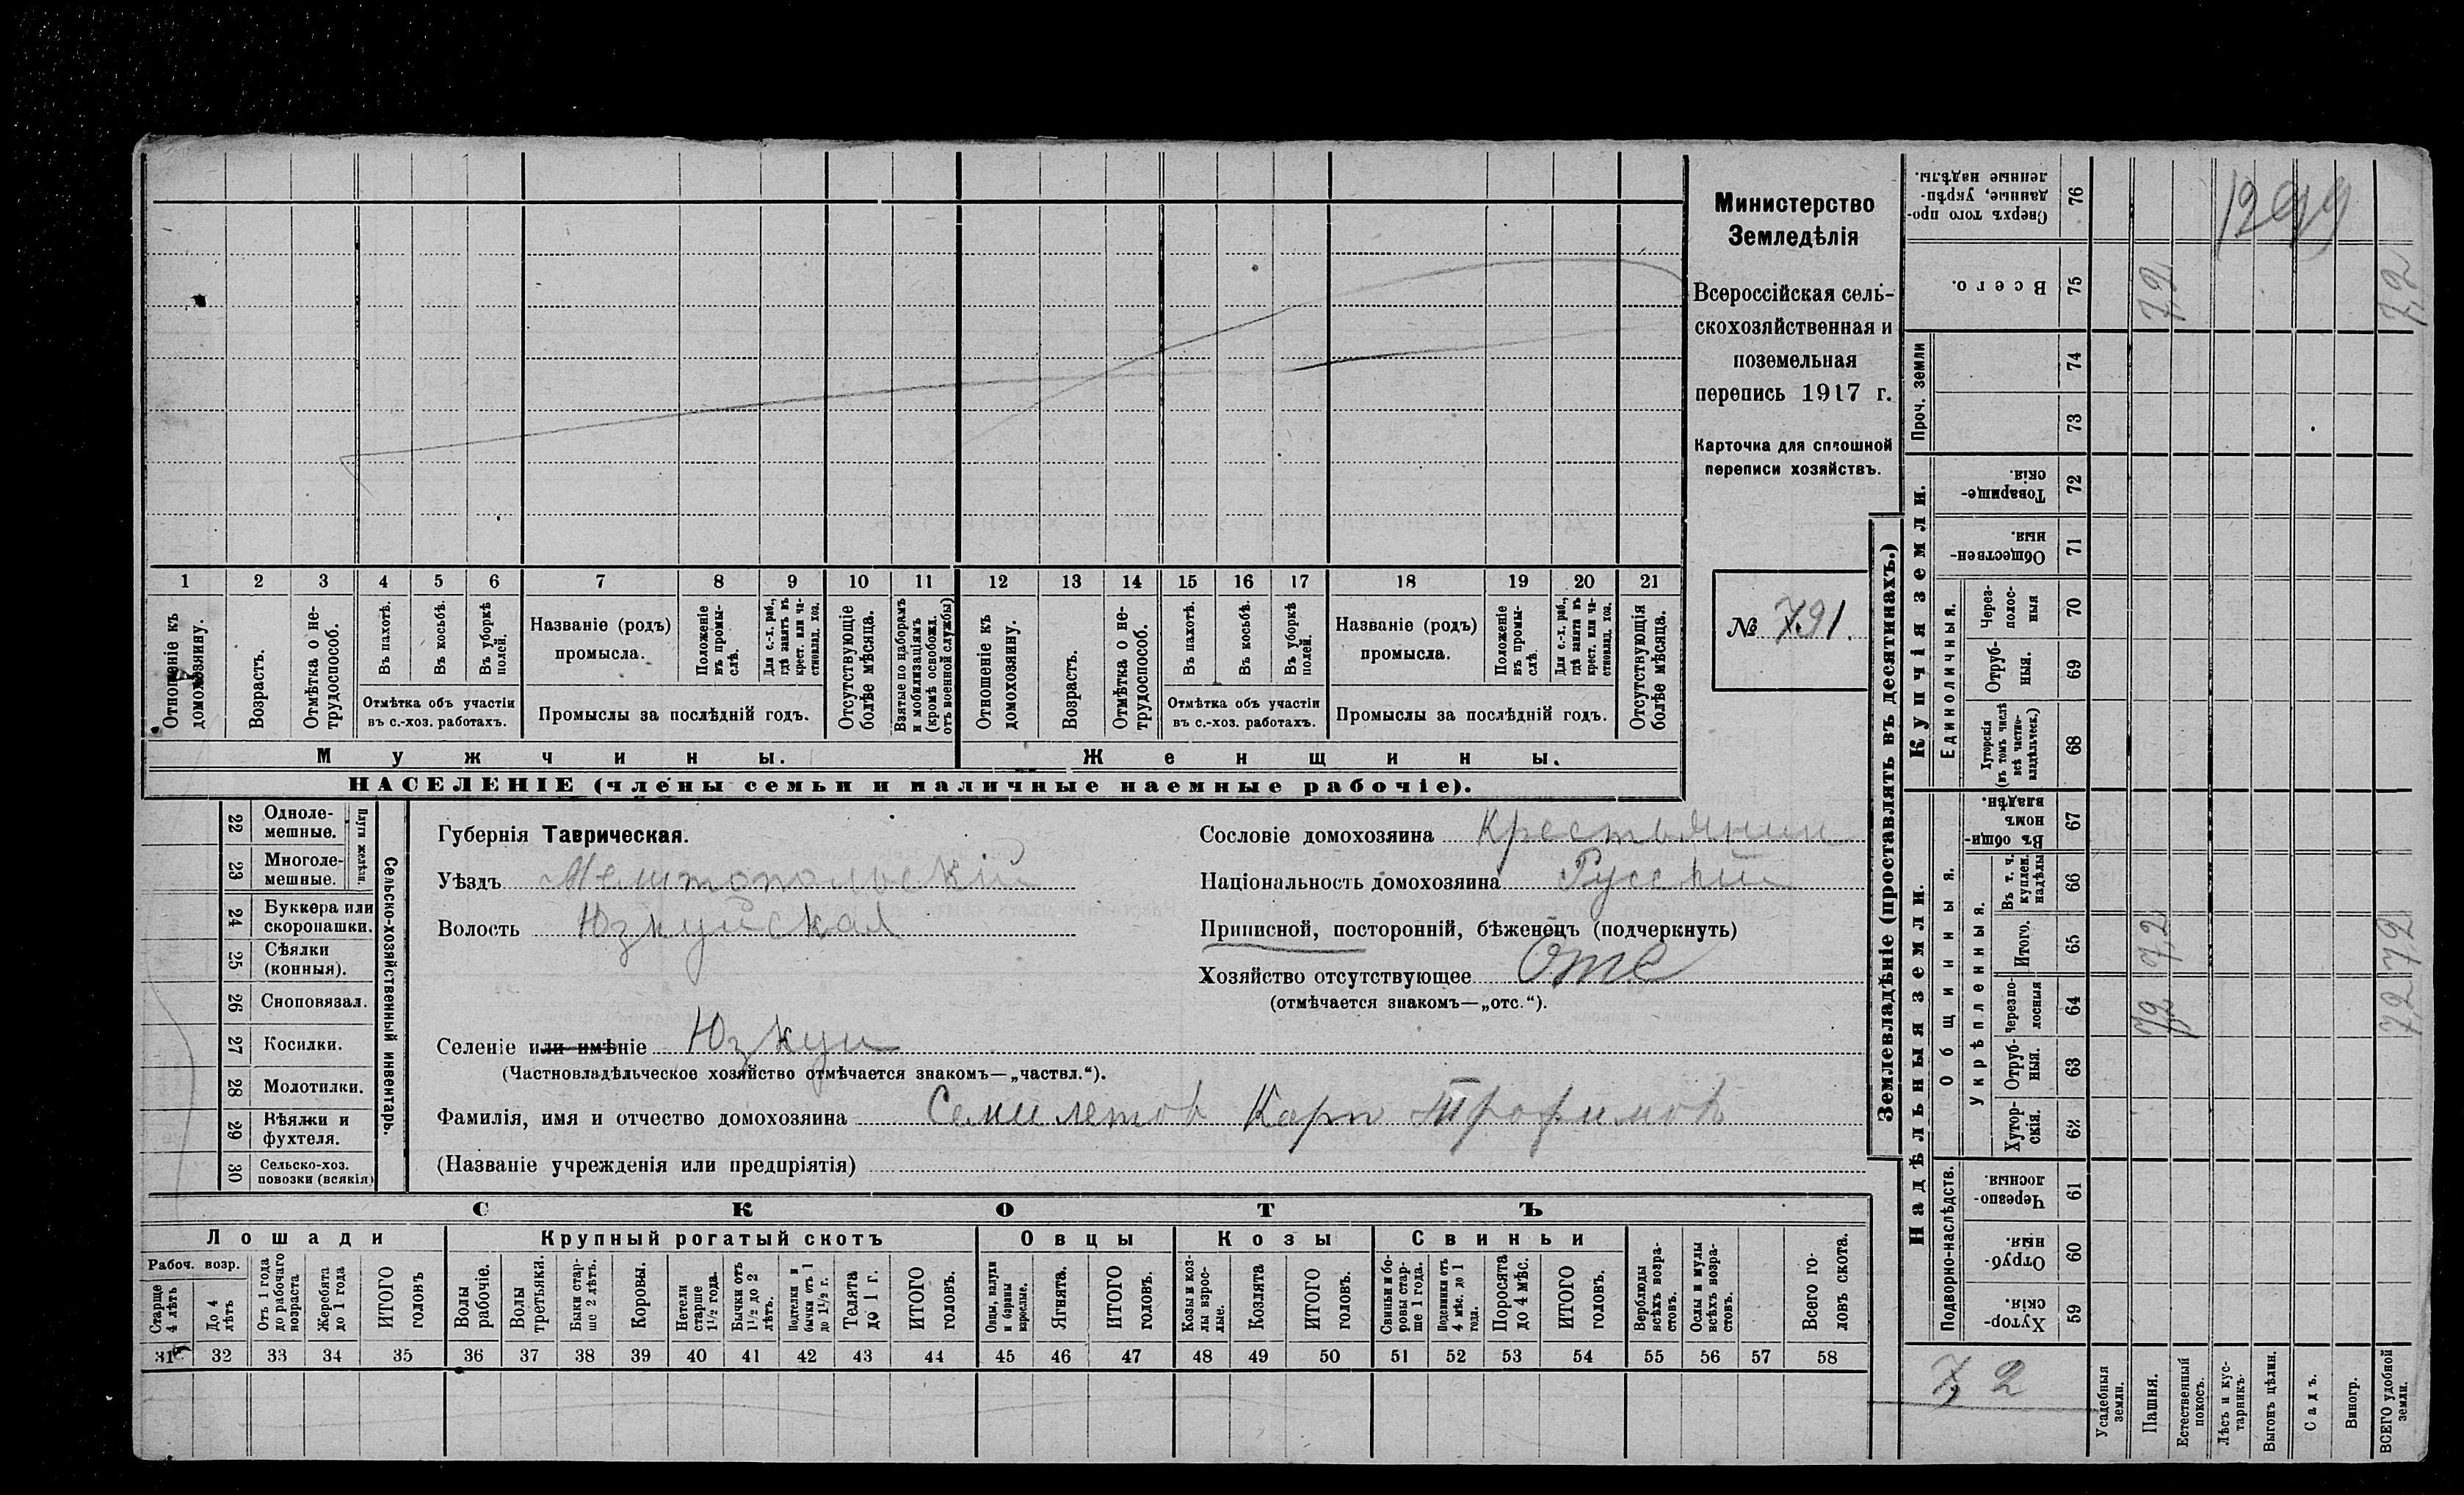 Министерство
Земледѣлія
Всероссійская сель-
скохозяйственная и
поземельная
перепись 1917 г.
Карточка для сплошной
переписи хозяйствъ.
№ 791.
1 2 3 4 5 6 7 8 9 10 11 12 13 14 15 16 17 18 19 20 21
Отношеніе къ домохозяину.
Возрастъ.
Отмѣтка о не-трудоспособ.
Въ пахотѣ.
Въ косьбѣ.
Въ уборкѣ полей.
Отмѣтка объ участіи
въ с.-хоз. работахъ.
Названіе (родъ)
промысла.
Положеніе въ промы-слѣ.
Для с.-х. раб., гдѣ занятъ въ крест. или ча-стновлад. хоз.
Промыслы за послѣдній годъ.
Отсутствующіе болѣе мѣсяца.
Взятые по наборамъ и мобилизаціямъ (кромѣ освобожд. отъ военной службы)
Отношеніе къ домохозяину.
Возрастъ.
Отмѣтка о не-трудоспособ.
Въ пахотѣ.
Въ косьбѣ.
Въ уборкѣ полей.
Отмѣтка объ участіи
въ с.-хоз. работахъ.
Названіе (родъ)
промысла.
Положеніе въ промы-слѣ.
Для с.-х. раб., гдѣ занята въ крест. или ча-стновлад. хоз.
Промыслы за послѣдній годъ.
Отсутствующія болѣе мѣсяца.
Мужчины.
Женщины.
НАСЕЛЕНІЕ (члены семьи и наличные наемные рабочіе).
Сельско-хозяйственный инвентарь.
Плуги желѣзн.
22 Одноле-мешные.
23 Многоле-мешные.
24 Буккера или скоропашки.
25 Сѣялки (конныя).
26 Сноповязал.
27 Косилки.
28 Молотилки.
29 Вѣялки и фухтеля.
30 Сельско-хоз. повозки (всякія)
Губернія Таврическая.
Уѣздъ Мелитопольскій
Волость Юзкуйская
Сословіе домохозяина Крестьянин
Національность домохозяина Русский
Приписной, посторонній, бѣженецъ (подчеркнуть)
Хозяйство отсутствующее Отс
(отмѣчается знакомъ—„отс.“).
Селеніе или имѣніе Юзкуи
(Частновладѣльческое хозяйство отмѣчается знакомъ—„частвл.“).
Фамилія, имя и отчество домохозяина Семилетов Карп Трофимов
(Названіе учрежденія или предпріятія)
СКОТЪ
Лошади
Крупный рогатый скотъ
Овцы
Козы
Свиньи
Рабоч. возр.
Старше 4 лѣтъ
До 4 лѣтъ
Отъ 1 года до рабочаго возраста
Жеребята до 1 года
ИТОГО головъ
Волы рабочіе.
Волы третьяки.
Быки стар-ше 2 лѣтъ.
Коровы.
Нетели старше 1½ года.
Бычки отъ 1½ до 2 лѣтъ.
Подтелки и бычки отъ 1 до 1½ г.
Телята до 1 г.
ИТОГО головъ.
Овцы, валухи и бараны взрослые.
Ягнята.
ИТОГО головъ.
Козы и коз-лы взрос-лые.
Козлята
ИТОГО головъ.
Свиньи и бо-ровы стар-ше 1 года.
Подсвинки отъ 4 мѣс. до 1 года.
Поросята до 4 мѣс.
ИТОГО головъ.
Верблюды всѣхъ возра-стовъ.
Ослы и мулы всѣхъ возра-стовъ.
Всего го-ловъ скота.
31 32 33 34 35 36 37 38 39 40 41 42 43 44 45 46 47 48 49 50 51 52 53 54 55 56 57 58
Землевладѣніе (проставлять въ десятинахъ.)
Надѣльныя земли.
Купчія земли.
Проч. земли
Подворно-наслѣдств.
Общинныя.
Укрѣпленныя.
Единоличныя.
Сверхъ того про-данные, укрѣп-ленные надѣлы. 76
Всего. 75
74
73
Товарище-скія. 72
Обществен-ныя. 71
Через-полос-ныя 70
Отруб-ныя. 69
Хуторскія (въ томъ числѣ всѣ частно-владѣльческ.) 68
Въ общи-номъ владѣн. 67
Въ т. ч. куплен. надѣлы 66
Итого. 65
Черезпо-лосныя 64
Отруб-ныя. 63
Хутор-скія. 62
Черезпо-лосныя. 61
Отруб-ныя. 60
Хутор-скія. 59
1299
7,2
7,2
7,2
7,2
7,2
7,2
7,2
Усадебныя земли.
Пашня.
Естественный покосъ.
Лѣсъ и кус-тарникъ.
Выгонъ цѣлин.
Садъ.
Виногр.
ВСЕГО удобной земли.